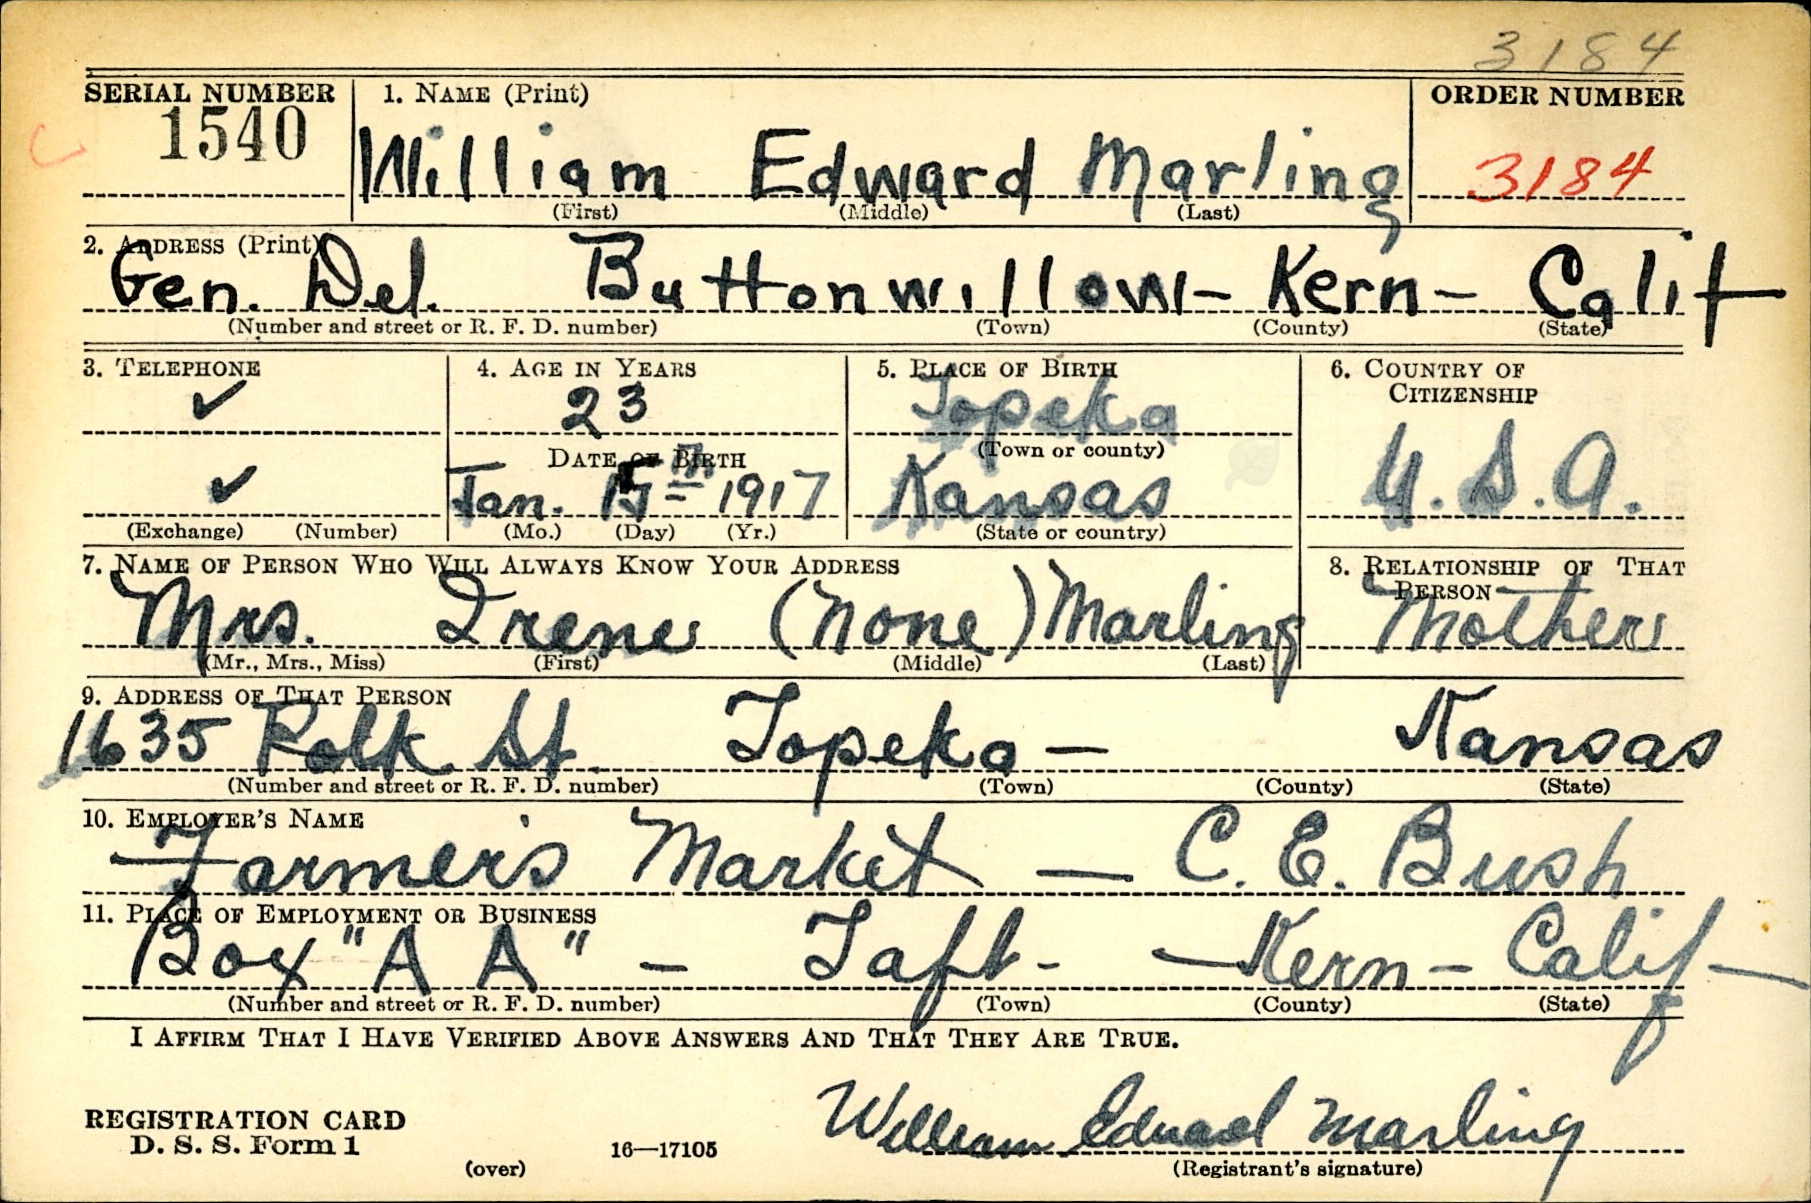 3184
SERIAL NUMBER 1. NAME (Print) ORDER NUMBER
1540 William Edward Marling 3184
(First) (Middle) (Last)
2. ADDRESS (Print)
Gen. Del. Buttonwillow - Kern - Calif
(Number and street or R. F. D. number) (Town) (County) (State)
3. TELEPHONE 4. AGE IN YEARS 5. PLACE OF BIRTH 6. COUNTRY OF CITIZENSHIP
✓ 23 Topeka
DATE OF BIRTH (Town or county)
✓ Jan. 15th 1917 Kansas U.S.A.
(Exchange) (Number) (Mo.) (Day) (Yr.) (State or country)
7. NAME OF PERSON WHO WILL ALWAYS KNOW YOUR ADDRESS 8. RELATIONSHIP OF THAT PERSON
Mrs. Irene (None) Marling Mother
(Mr., Mrs., Miss) (First) (Middle) (Last)
9. ADDRESS OF THAT PERSON
1635 Polk St. Topeka - Kansas
(Number and street or R. F. D. number) (Town) (County) (State)
10. EMPLOYER'S NAME
Farmer's Market - C. E. Bush
11. PLACE OF EMPLOYMENT OR BUSINESS
Box "A A" - Taft - Kern - Calif
(Number and street or R. F. D. number) (Town) (County) (State)
I AFFIRM THAT I HAVE VERIFIED ABOVE ANSWERS AND THAT THEY ARE TRUE.
William Edward Marling
REGISTRATION CARD
D. S. S. Form 1 16—17105
(over) (Registrant's signature)